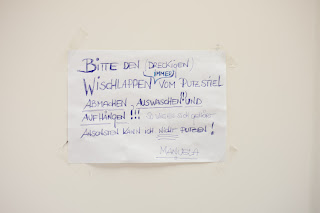 BITTE DEN (DRECKIGEN)
IMMER
WISCHLAPPEN VOM PUTZSTIEL
ABMACHEN, AUSWASCHEN!! UND
AUFHÄNGEN!!!
ANSONSTEN KANN ICH NICHT PUTZEN!
MANUELA